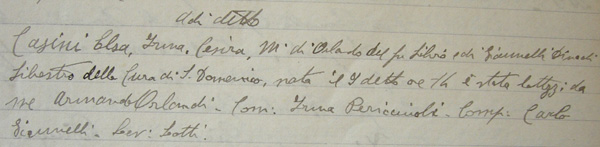 Adi detto
Casini Elsa, Irma, Cesira, M. di Orlando del fu Silvio e di Giannelli
Silvestro della Cura di S. Domenico, nata il 7 detto ore 14 è stata battzzi da
me Armando Orlandi. Com: Irma Periccioli. Comp: Carlo
Giannelli. Lev: Lotti.